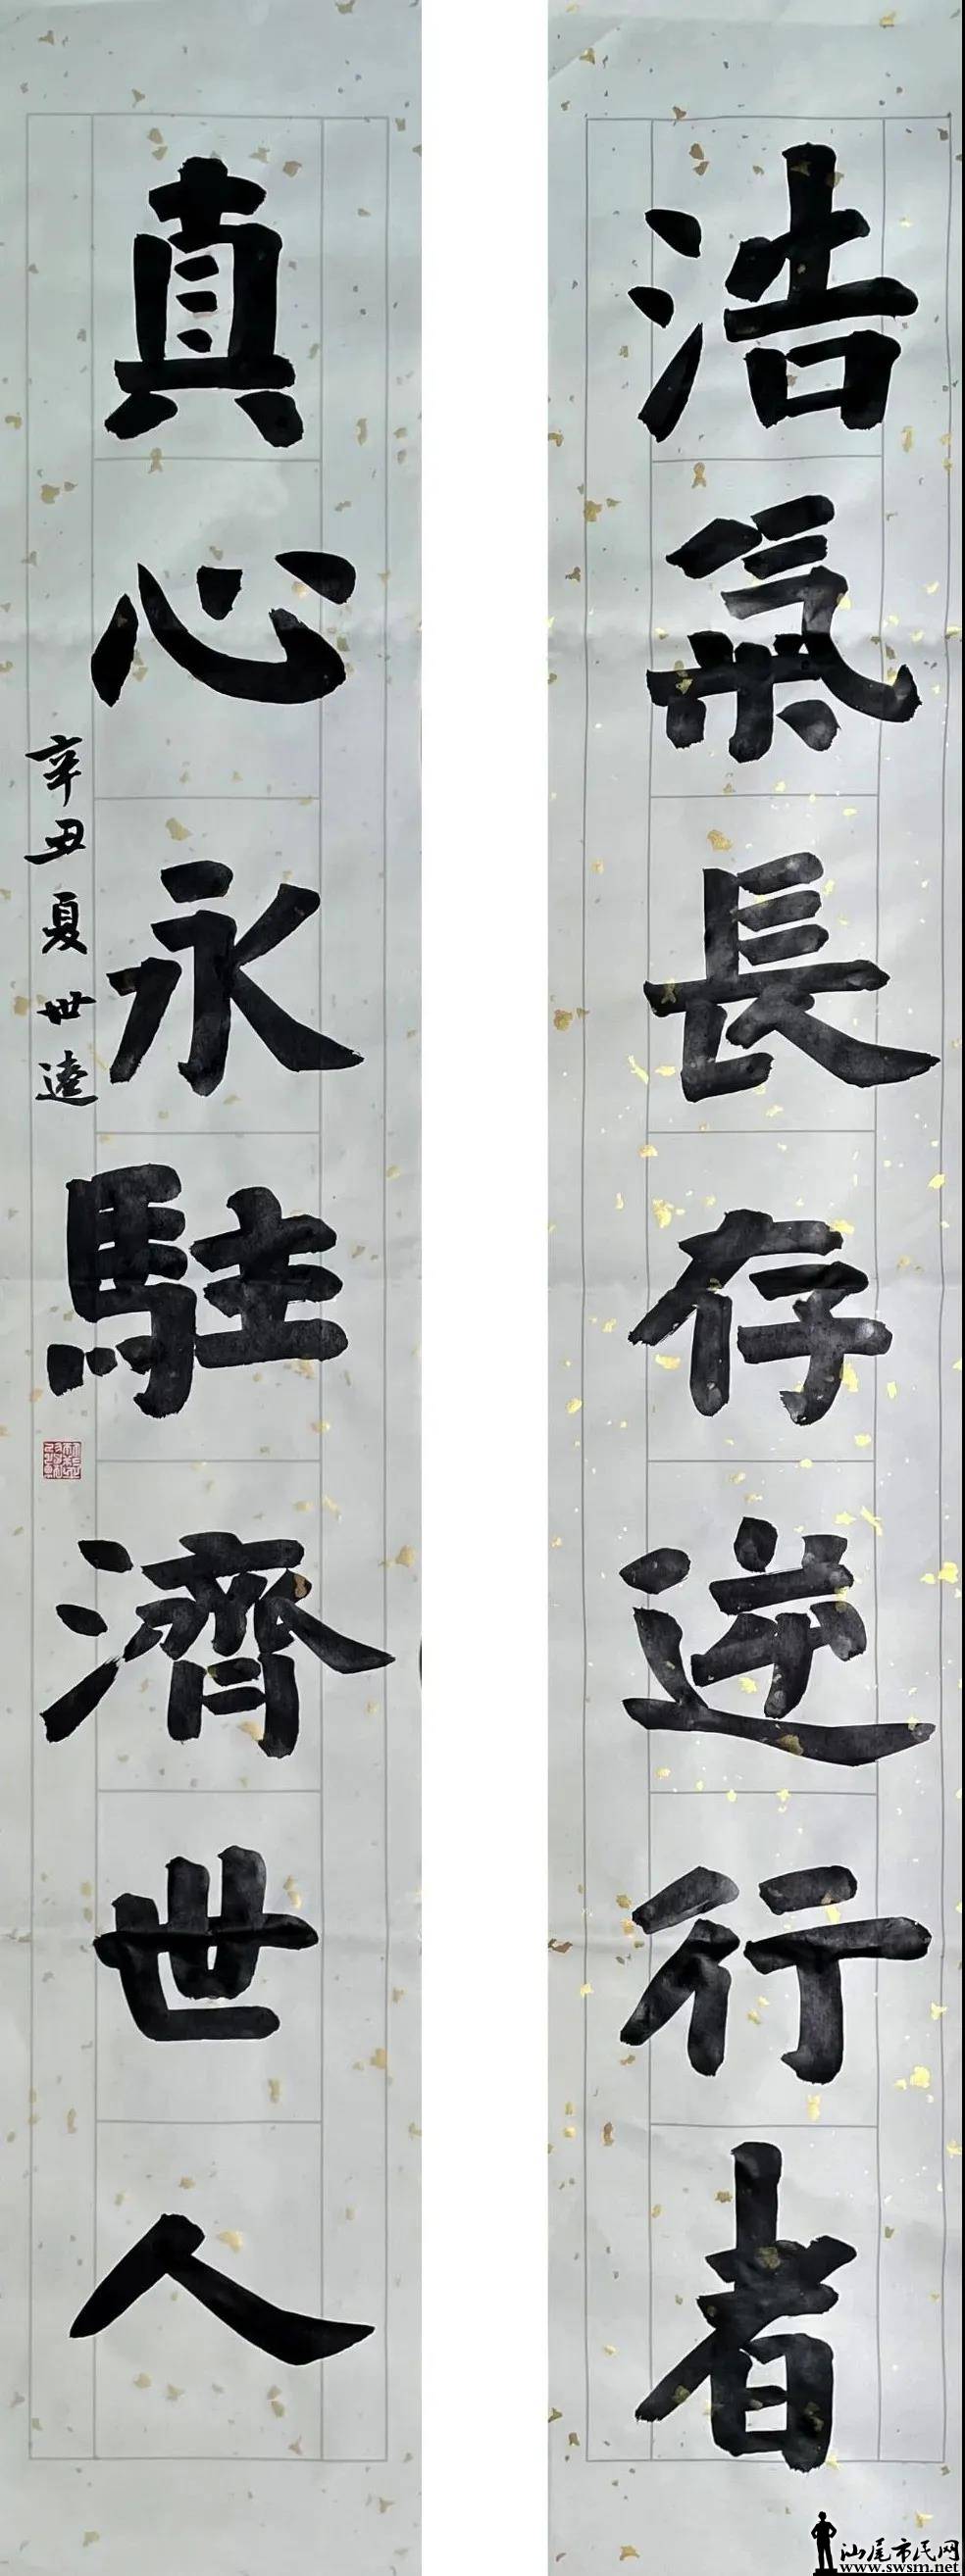 浩氣長存逆行者
真心永駐濟世人
辛丑夏世逵
汕尾市民网
www.swsm.net